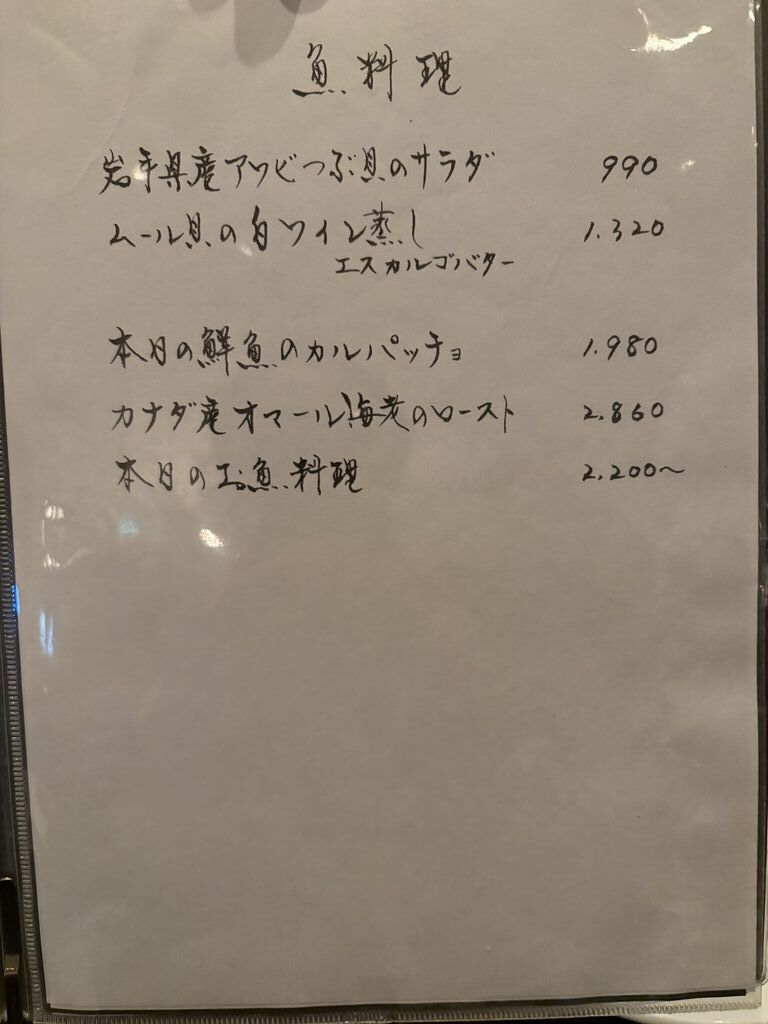 魚料理
岩手県産アワビつぶ貝のサラダ 990
ムール貝の白ワイン蒸し 1.320
エスカルゴバター
本日の鮮魚のカルパッチョ 1.980
カナダ産オマール海老のロースト 2.860
本日のお魚料理 2.200~